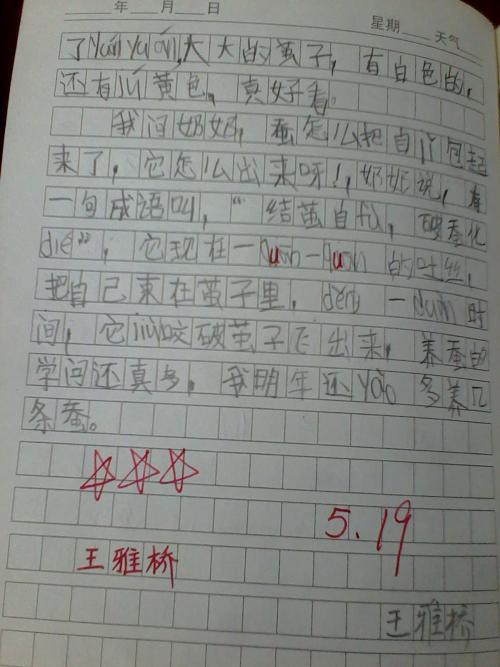 年 月 日
星期 天气
了yuán yuán,大大的茧子,有白色的,
还有lǜ黄色,真好看。
我问奶奶,蚕怎么把自丫包起
来了,它怎么出来呀!,奶奶说,有
一句成语叫,“结茧自fù,破茧化
dié”,它现在一quān一quān的吐丝,
把自己束在茧子里,děng一duàn时
间,它jiù咬破茧子飞出来,养蚕的
学问还真多,我明年还yào多养几
条蚕。
5.19
王雅桥
王雅桥